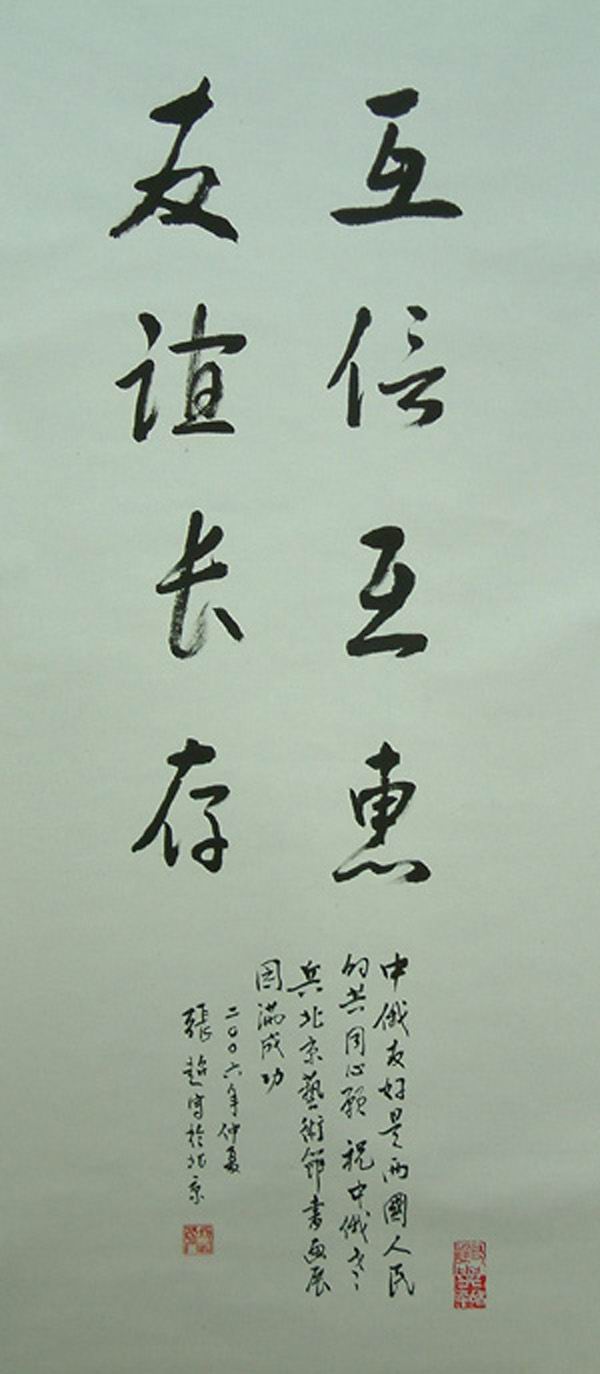 互信互惠
友谊长存
中俄友好是两國人民
的共同心願 祝中俄
兵北京藝術節書画展
圆满成功
二00六年仲夏
張 写於北京